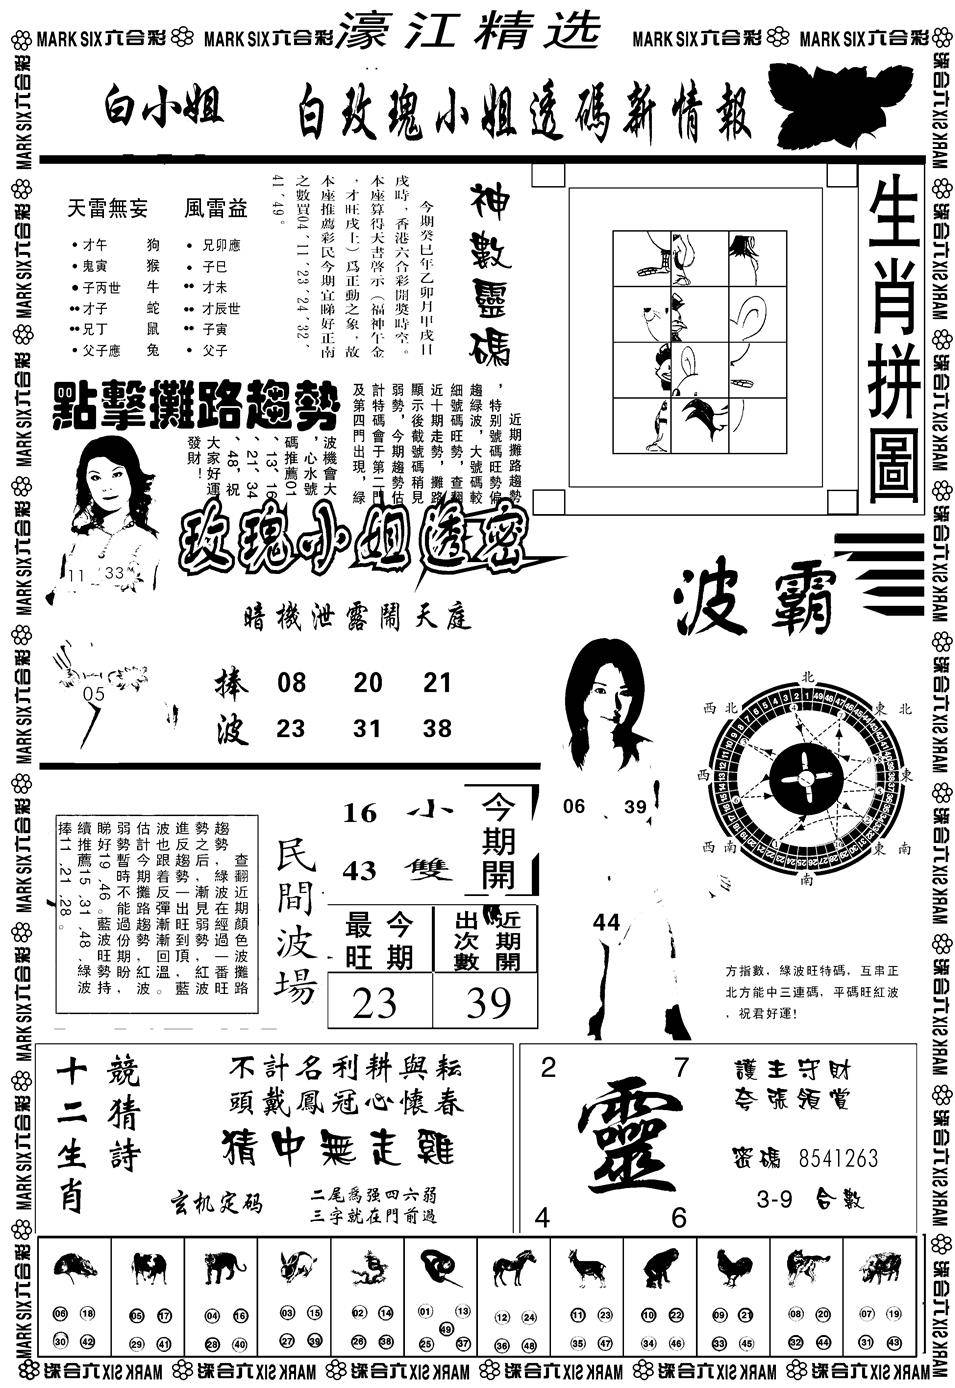 MARK SIX六合彩 MARK SIX六合彩 濠江精选 MARK SIX六合彩 MARK SIX六合彩
白小姐 白玫瑰小姐透碼新情報
天雷無妄 風雷益
·才午 狗 ·兄卯應
·鬼寅 猴 ·子巳
●子丙世 牛 ··才未
··才子 蛇 ··才辰世
··兄丁 鼠 ··子寅
·父子應 兔 ·父子
神數靈碼
今期癸巳年乙卯月甲戌日
戌時，香港六合彩開獎時空。
本座算得天書啓示（福神午金
，才旺戌上）爲正動之象，故
本座推薦彩民今期宜睇好正南
之數買04、11、23、24、32、
41、49。
生肖拼圖
點擊攤路趨勢
近期攤路趨勢
，特别號碼旺勢偏
趨綠波，大號碼較
細號碼旺勢，查翻
近十期走勢，攤路
顯示後截號碼稍見
弱勢，今期趨勢估
計特碼會于第二門
及第四門出現，綠
波機會大
，心水號
碼推薦01
、13、16
、21、34
、48，祝
大家好運
發財！
11 33
05
玫瑰小姐透密
暗機泄露鬧天庭
捧 08 20 21
波 23 31 38
波霸
北
西北 東北
西 東
西南 東南
南
06 39
44
方指數，綠波旺特碼，互串正
北方能中三連碼，平碼旺紅波
，祝君好運！
查翻近期顏色波攤路
趨勢，綠波在經過一番旺
勢之后，漸見弱勢，紅波
進反趨勢一出旺到頂，藍
波也跟着反彈漸漸回溫。
估計今期攤路趨勢紅波
弱勢暫時不能過份期盼，
睇好19、46。藍波旺勢持
續推薦15、31、48、綠波
捧11、21、28。
民間波場
16 小
43 雙
今期開
今期最旺
近期開出次數
23 39
競猜詩
十二生肖
不計名利耕與耘
頭戴鳳冠心懷春
猜中無走雞
玄机定码
二尾爲强四六弱
三字就在門前過
2 7
靈
4 6
護主守財
夸張領賞
密碼 8541263
3-9 合數
06 18 05 17 04 16 03 15 02 14 01 13 12 24 11 23 10 22 09 21 08 20 07 19
30 42 29 41 28 40 27 39 26 38 25 49 37 36 48 35 47 34 46 33 45 32 44 31 43
MARK SIX六合彩 MARK SIX六合彩 MARK SIX六合彩 MARK SIX六合彩 MARK SIX六合彩 MARK SIX六合彩